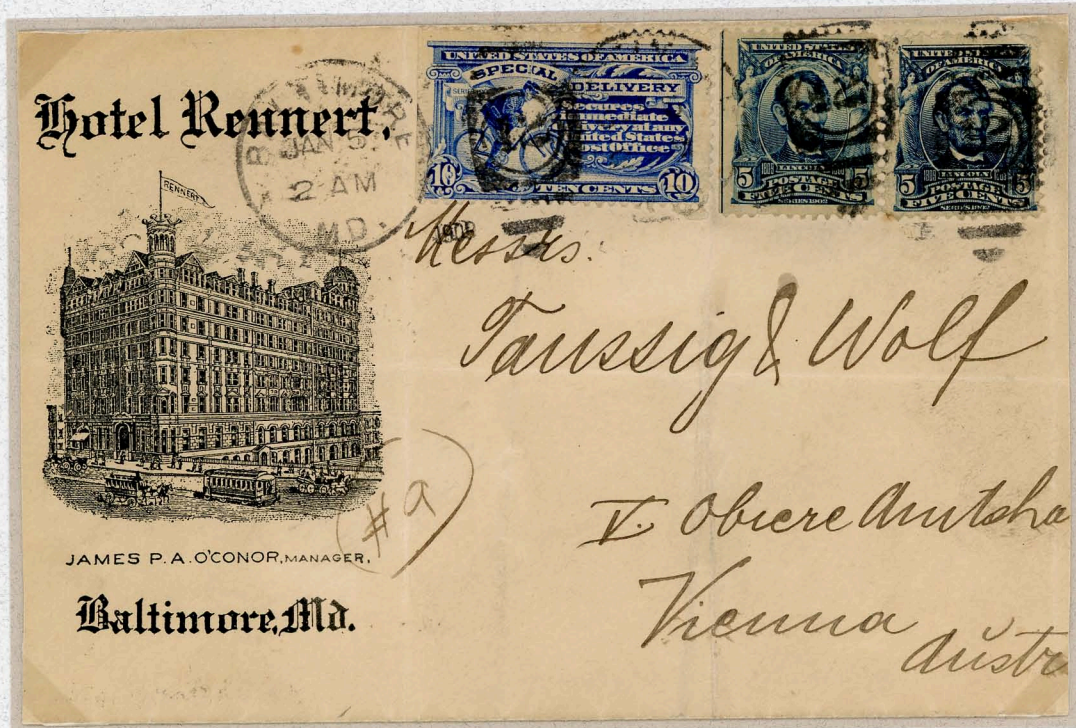 Hotel Rennert,
RENNERT
JAMES P. A. O'CONOR, MANAGER,
Baltimore, Md.
BALTIMORE
JAN 5
2 AM
MD.
1905
UNITED STATES OF AMERICA
SPECIAL DELIVERY
Secures
immediate
delivery at any
United States
Post office
10 TEN CENTS 10
UNITED STATES
OF AMERICA
LINCOLN
5 POSTAGE 5
FIVE CENTS
SERIES 1902
UNITED STATES
OF AMERICA
LINCOLN
5 POSTAGE 5
FIVE CENTS
SERIES 1902
Messrs.
Taussig & Wolf
V. Obere Amtsha
Vienna
Austr
(#9)